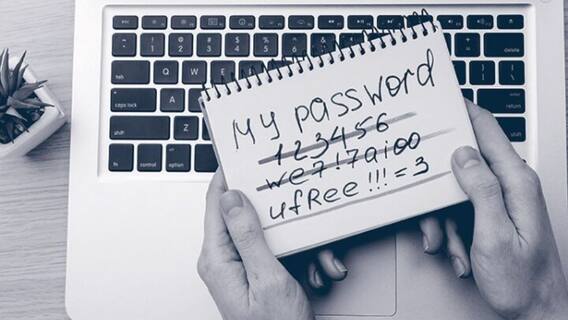 My password
123456
we7!7ai00
ufRee!!!=3
tab
Q
W
caps lock
A
shift
Z
fn
control
option